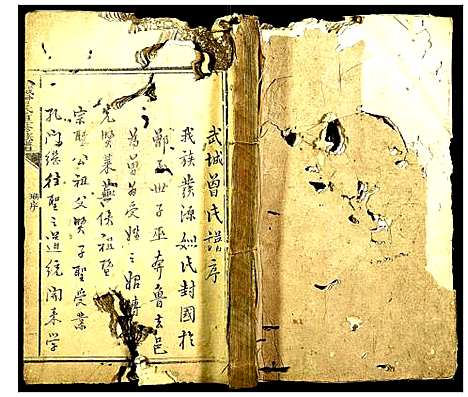 武城曾氏譜序
我族發源姒氏封國於
鄫至世子巫奔魯去邑
爲曾爲受姓之始
先賢萊蕪侯祖暨
宗聖公祖父賢子聖受業
孔門繼往聖之道統開來學
序